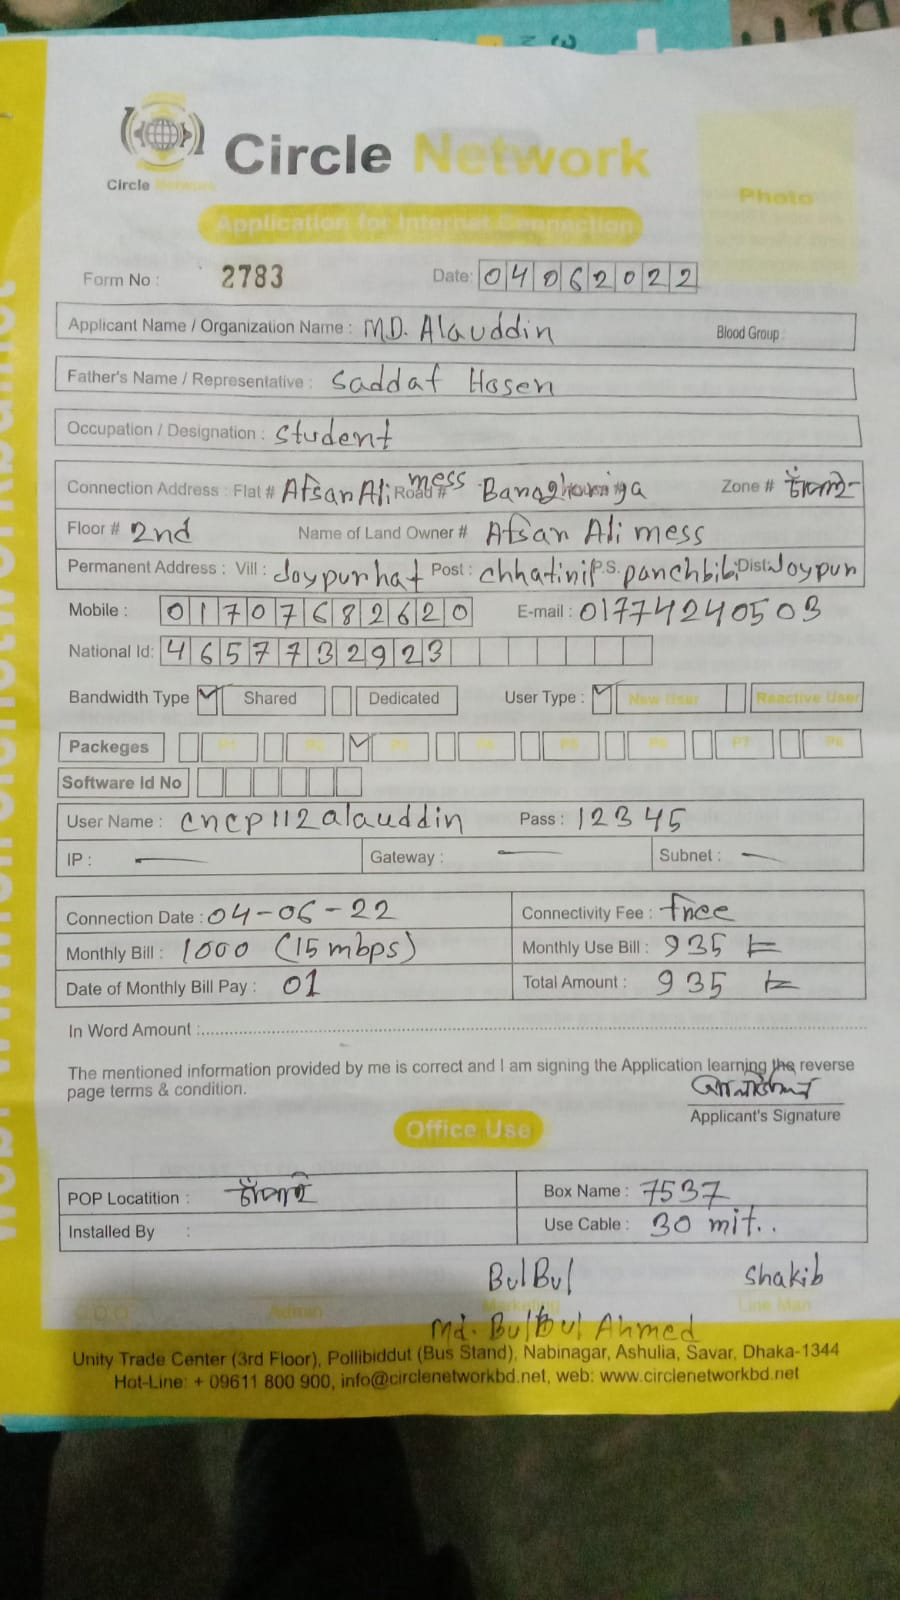 Circle Network
Circle Network
Photo
Application for Internet Connection
Form No : 2783 Date: 04062022
Applicant Name / Organization Name : MD. Alauddin Blood Group :
Father's Name / Representative : Saddat Hosen
Occupation / Designation : Student
Connection Address : Flat # Afsan Ali mess Road # Zone #
Floor # 2nd Name of Land Owner # Afsan Ali mess
Permanent Address : Vill : Joypurhat Post : chhatinip P.S. panchbibi Dist: Joypur
Mobile : 01707682620 E-mail : 01774240503
National Id: 4657732923
Bandwidth Type Shared Dedicated User Type : New User Reactive User
Packeges P1 P2 P3 P4 P5 P6 P7 P8
Software Id No
User Name : cncp112alauddin Pass : 12345
IP : — Gateway : — Subnet : —
Connection Date : 04-06-22 Connectivity Fee : free
Monthly Bill : 1000 (15 mbps) Monthly Use Bill : 935
Date of Monthly Bill Pay : 01 Total Amount : 935
In Word Amount :
The mentioned information provided by me is correct and I am signing the Application learning the reverse
page terms & condition.
Applicant's Signature
Office Use
POP Locatition : Box Name : 7537
Installed By : Use Cable : 30 mit..
BulBul Shakib
C.O.O Admin Marketing Line Man
Md. BulBul Ahmed
Unity Trade Center (3rd Floor), Pollibiddut (Bus Stand), Nabinagar, Ashulia, Savar, Dhaka-1344
Hot-Line: + 09611 800 900, info@circlenetworkbd.net, web: www.circlenetworkbd.net